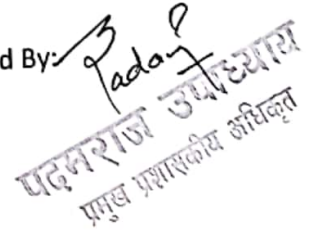 d By:
पदमराज उपाध्याय
प्रमुख प्रशासकीय अधिकृत